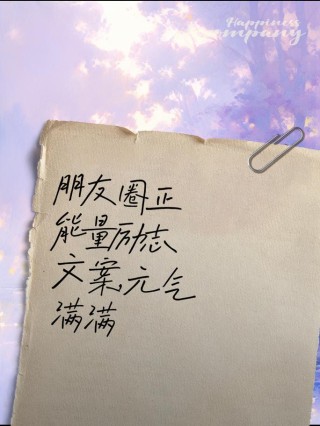 Happiness
company
朋友圈正
能量励志
文案,元气
满满